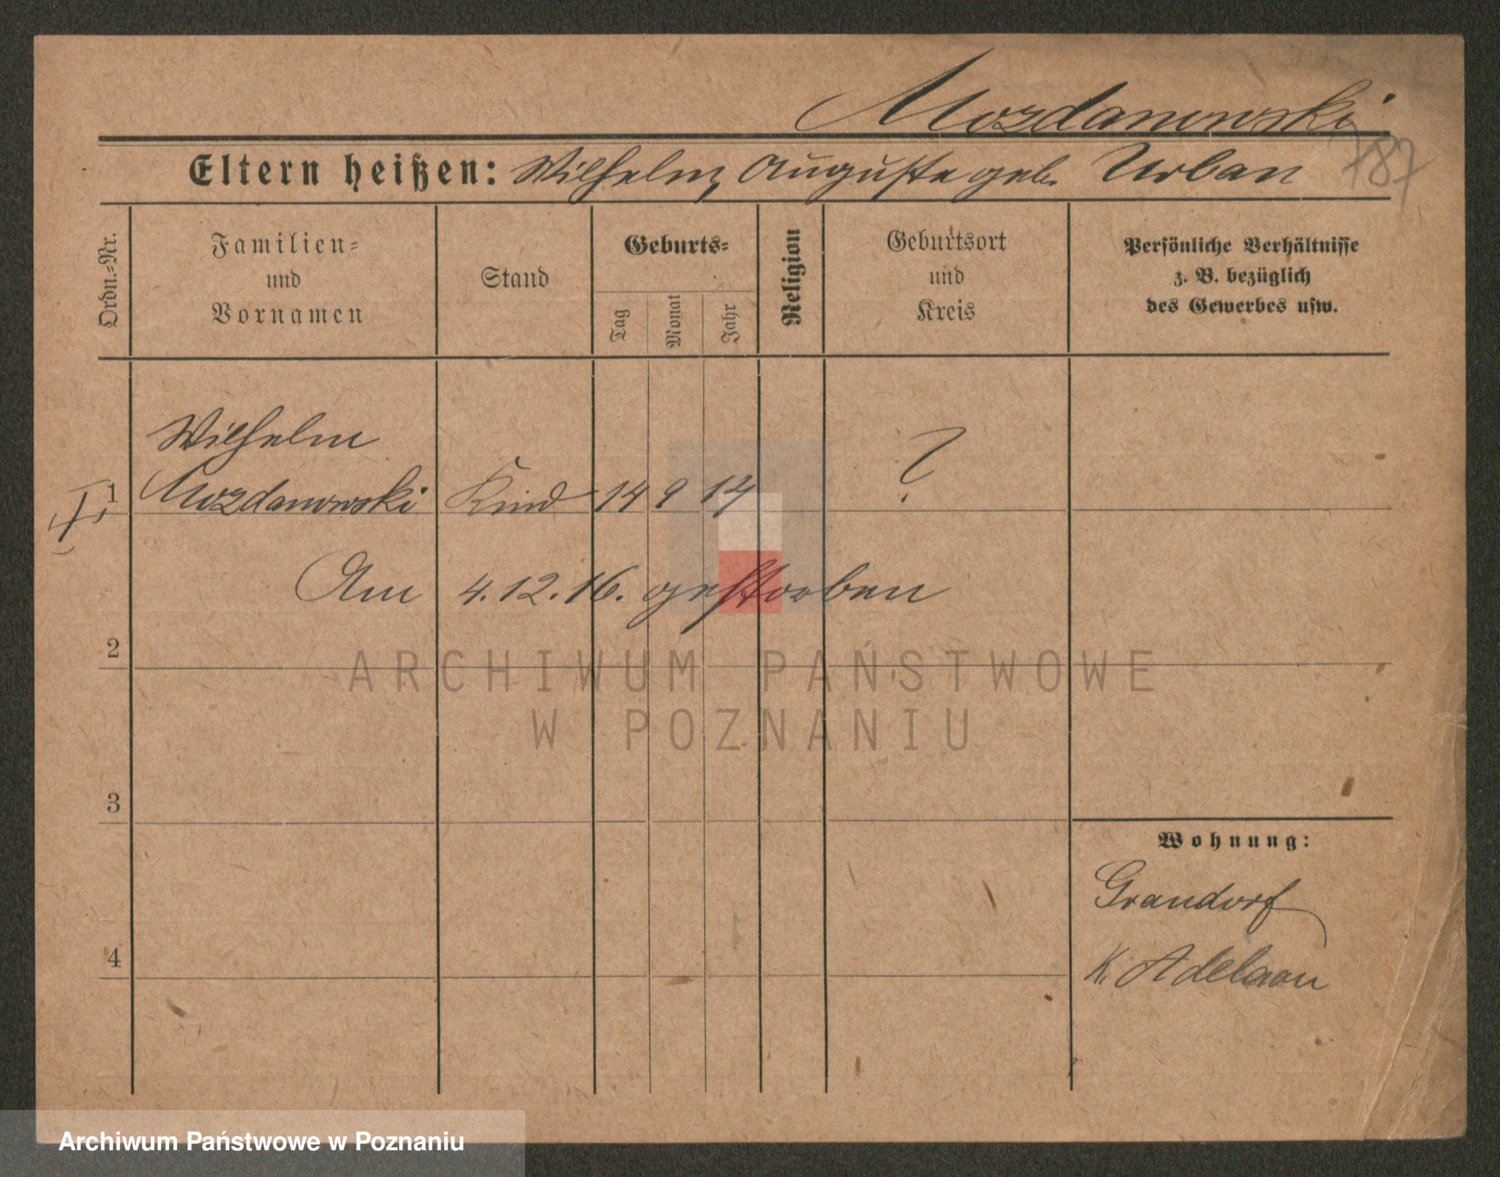 Mozdanowski
787
Eltern heißen: Wilhelm, Auguste geb. Urban
Ordn.-Nr.
Familien-
und
Vornamen
Stand
Geburts-
Tag
Monat
Jahr
Religion
Geburtsort
und
Kreis
Persönliche Verhältnisse
z. B. bezüglich
des Gewerbes usw.
Wilhelm
1 Mozdanowski Kind 14 9 14 ?
Am 4.12.16. gestorben
2
ARCHIWUM PAŃSTWOWE
W POZNANIU
3
Wohnung:
Grandorf
K. Adelnau
4
Archiwum Państwowe w Poznaniu